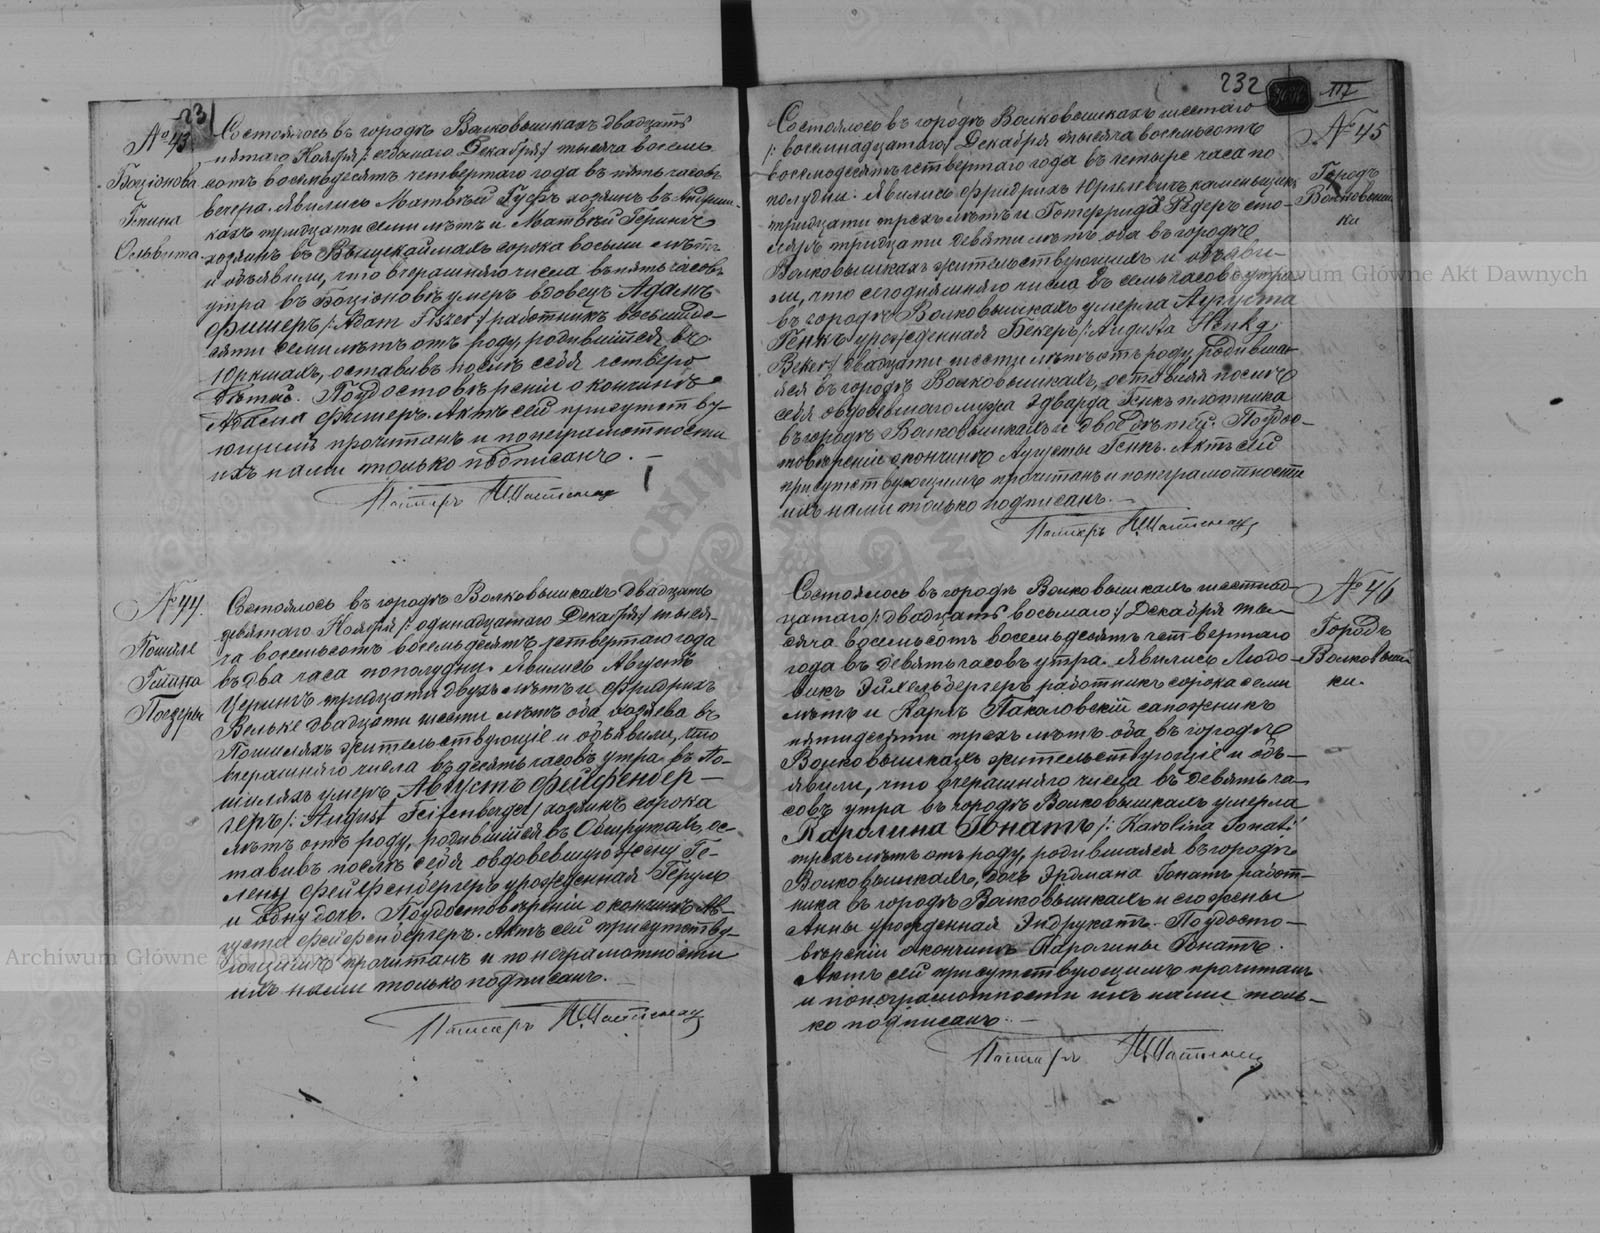 231
№ 43
Боціонова
Гмина
Ольвита
Состоялось въ городѣ Волковышкахъ двадцать
пятаго Ноября /: седьмаго Декабря :/ тысяча восемь
сотъ восемьдесятъ четвертаго года въ пять часовъ
вечера. Явились Матвѣй Гуфъ хозяинъ въ
кахъ тридцати семи лѣтъ и Матвѣй Геринъ
хозяинъ въ сорока восьми лѣтъ
и объявили, что вчерашняго числа въ пять часовъ
утра въ Боціоновѣ умеръ вдовецъ Адамъ
Фишеръ /: Adam Fiszer :/ работникъ восьмиде-
сяти семи лѣтъ отъ роду, родившійся въ
Юркшахъ, оставивъ послѣ себя четверо
дѣтей. По удостовѣреніи о кончинѣ
Адама Фишеръ. Актъ сей присутству-
ющимъ прочитанъ и по неграмотности
ихъ нами только подписанъ. —
Пасторъ
№ 44.
Пошиле
Гмина
Поезеры
Состоялось въ городѣ Волковышкахъ двадцать
девятаго Ноября /: одинадцатаго Декабря :/ тыся-
ча восемьсотъ восемьдесятъ четвертаго года
въ два часа пополудни. Явились Августъ
Церинъ тридцати двухъ лѣтъ и Фридрихъ
Вельке двадцати шести лѣтъ оба хозяева въ
Пошиляхъ жительствующіе и объявили, что
вчерашняго числа въ десять часовъ утра въ По-
шиляхъ умеръ Августъ Фейфенбер-
геръ /: August Feifenberger / хозяинъ сорока
лѣтъ отъ роду, родившійся въ Обшрутахъ, ос-
тавивъ послѣ себя овдовевшую жену Ге-
лену Фейфенбергеръ урожденная Герулъ
и одну дочь. По удостовѣреніи о кончинѣ Ав-
густа Фейфенбергеръ. Актъ сей присутству-
ющимъ прочитанъ и по неграмотности
ихъ нами только подписанъ. —
Пасторъ
232
117
№ 45
Городъ
Волковыш-
ки
Состоялось въ городѣ Волковышкахъ шестаго
/: восемнадцатаго :/ Декабря тысяча восемьсотъ
восемьдесятъ четвертаго года въ четыре часа по
полудни. Явились Фридрихъ Юргелевичъ каменьщикъ
тридцати трехъ лѣтъ и Готфридъ Редеръ сто-
ляръ тридцати девяти лѣтъ оба въ городѣ
Волковышкахъ жительствующихъ и объяви-
ли, что сегодняшняго числа въ семь часовъ утра
въ городѣ Волковышкахъ умерла Августа
Генкъ урожденная Бекеръ /: Augusta Henk g.
Beker :/ двадцати шести лѣтъ отъ роду, родивша-
яся въ городѣ Волковышкахъ, оставила послѣ
себя овдовевшаго мужа Эдварда Генкъ плотника
въ городѣ Волковышкахъ и двое дѣтей. По удос-
товѣреніи о кончинѣ Августы Генкъ. Актъ сей
присутствующимъ прочитанъ и по неграмотности
ихъ нами только подписанъ. —
Пасторъ
№ 46
Городъ
Волковыш-
ки.
Состоялось въ городѣ Волковышкахъ шестнад-
цатаго /: двадцать восьмаго :/ Декабря ты-
сяча восемьсотъ восемьдесятъ четвертаго
года въ девять часовъ утра. Явились Людо-
викъ Эйхельбергеръ работникъ сорока семи
лѣтъ и Карлъ Пакаловскій сапожникъ
пятидесяти трехъ лѣтъ оба въ городѣ
Волковышкахъ жительствующіе и объ-
явили, что вчерашняго числа въ девять ча-
совъ утра въ городѣ Волковышкахъ умерла
Каролина Гонатъ /: Karolina Gonat :/
трехъ лѣтъ отъ роду, родившаяся въ городѣ
Волковышкахъ, дочь Эрдмана Гонатъ работ-
ника въ городѣ Волковышкахъ и его жены
Анны урожденная Эндрукатъ. По удосто-
вѣреніи о кончинѣ Каролины Гонатъ.
Актъ сей присутствующимъ прочитанъ
и по неграмотности ихъ нами толь-
ко подписанъ. —
Пасторъ
Archiwum Główne Akt Dawnych
Archiwum Główne Akt Dawnych